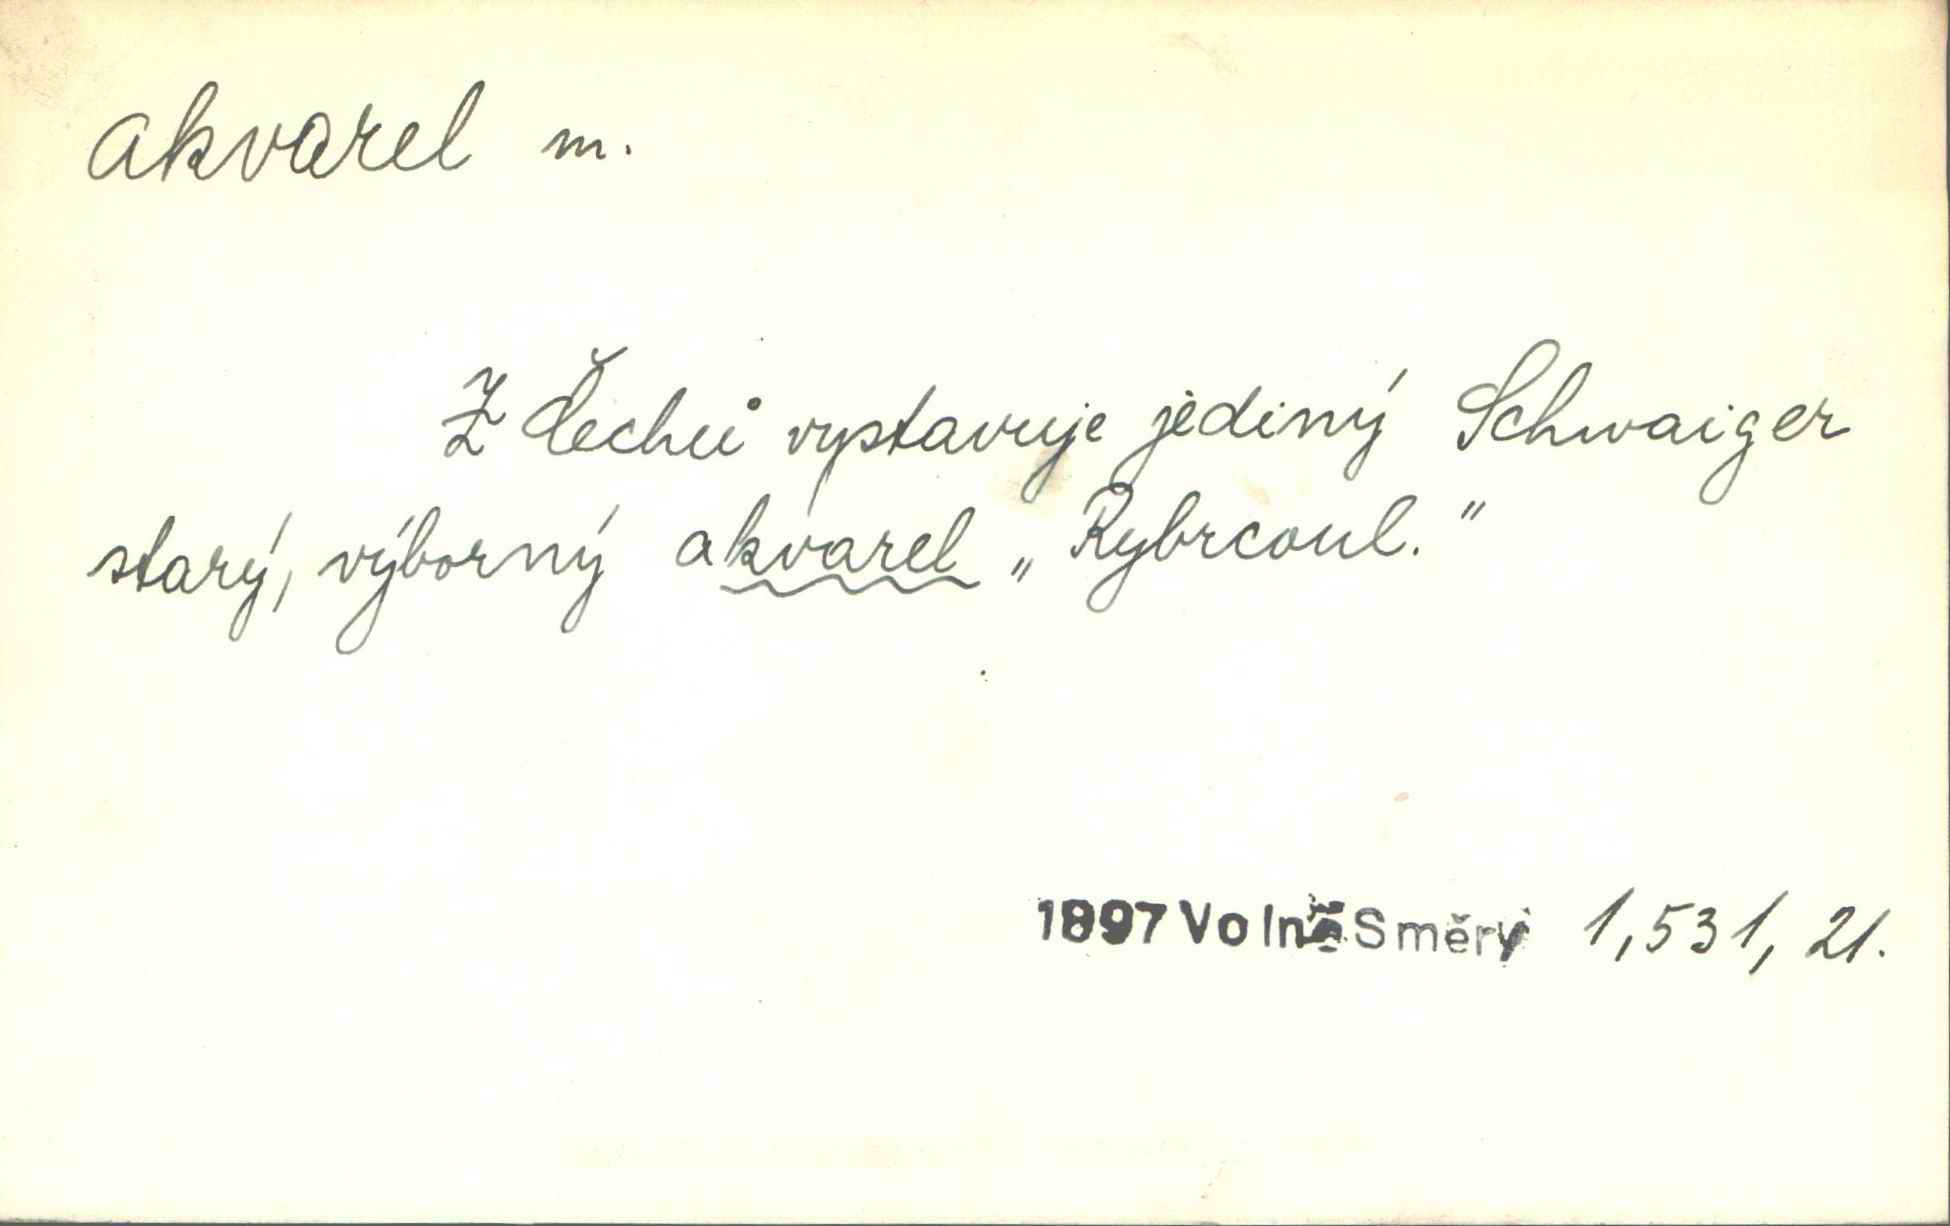 akvarel m.
Z Čechů vystavuje jediný Schwaiger
starý, výborný akvarel „Rybrcoul."
1897 Volné Směry 1,531, 21.